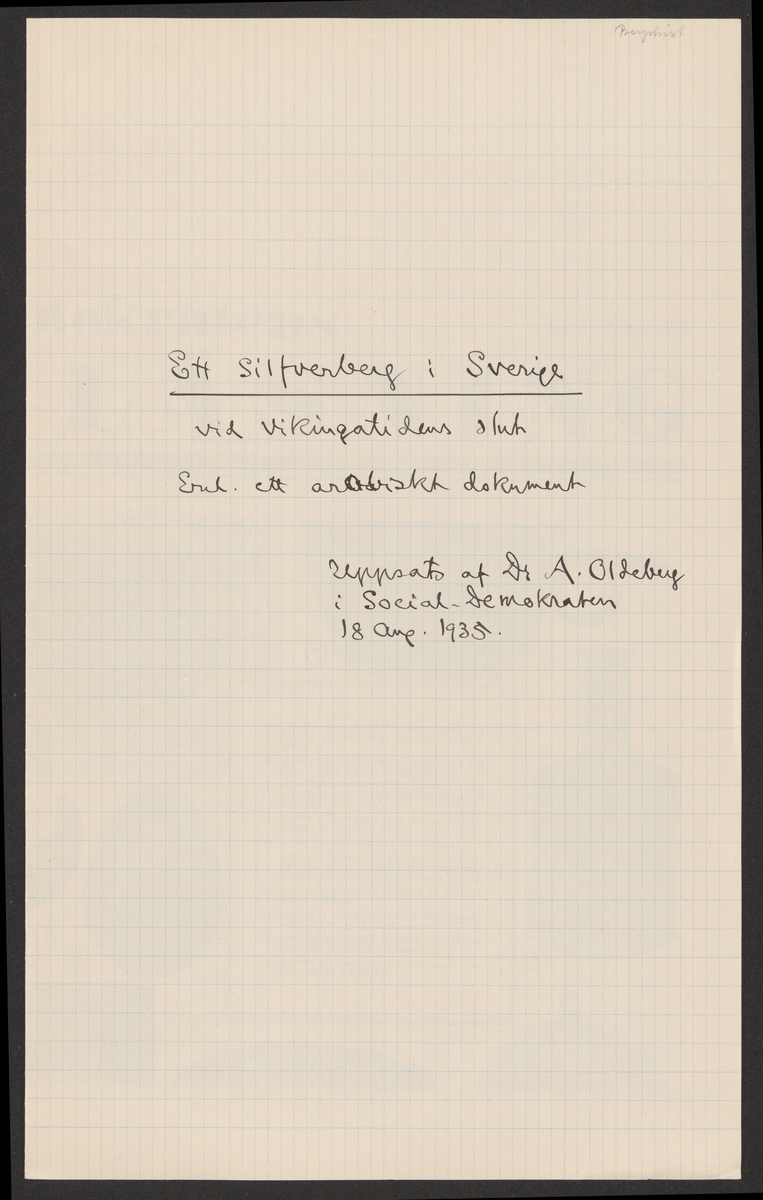 Berghist
Ett Silfverberg i Sverige
vid Vikingatidens slut
Enl. ett arabiskt dokument
Uppsats af Dr A. Oldeberg
i Social-Demokraten
18 Aug. 1935.